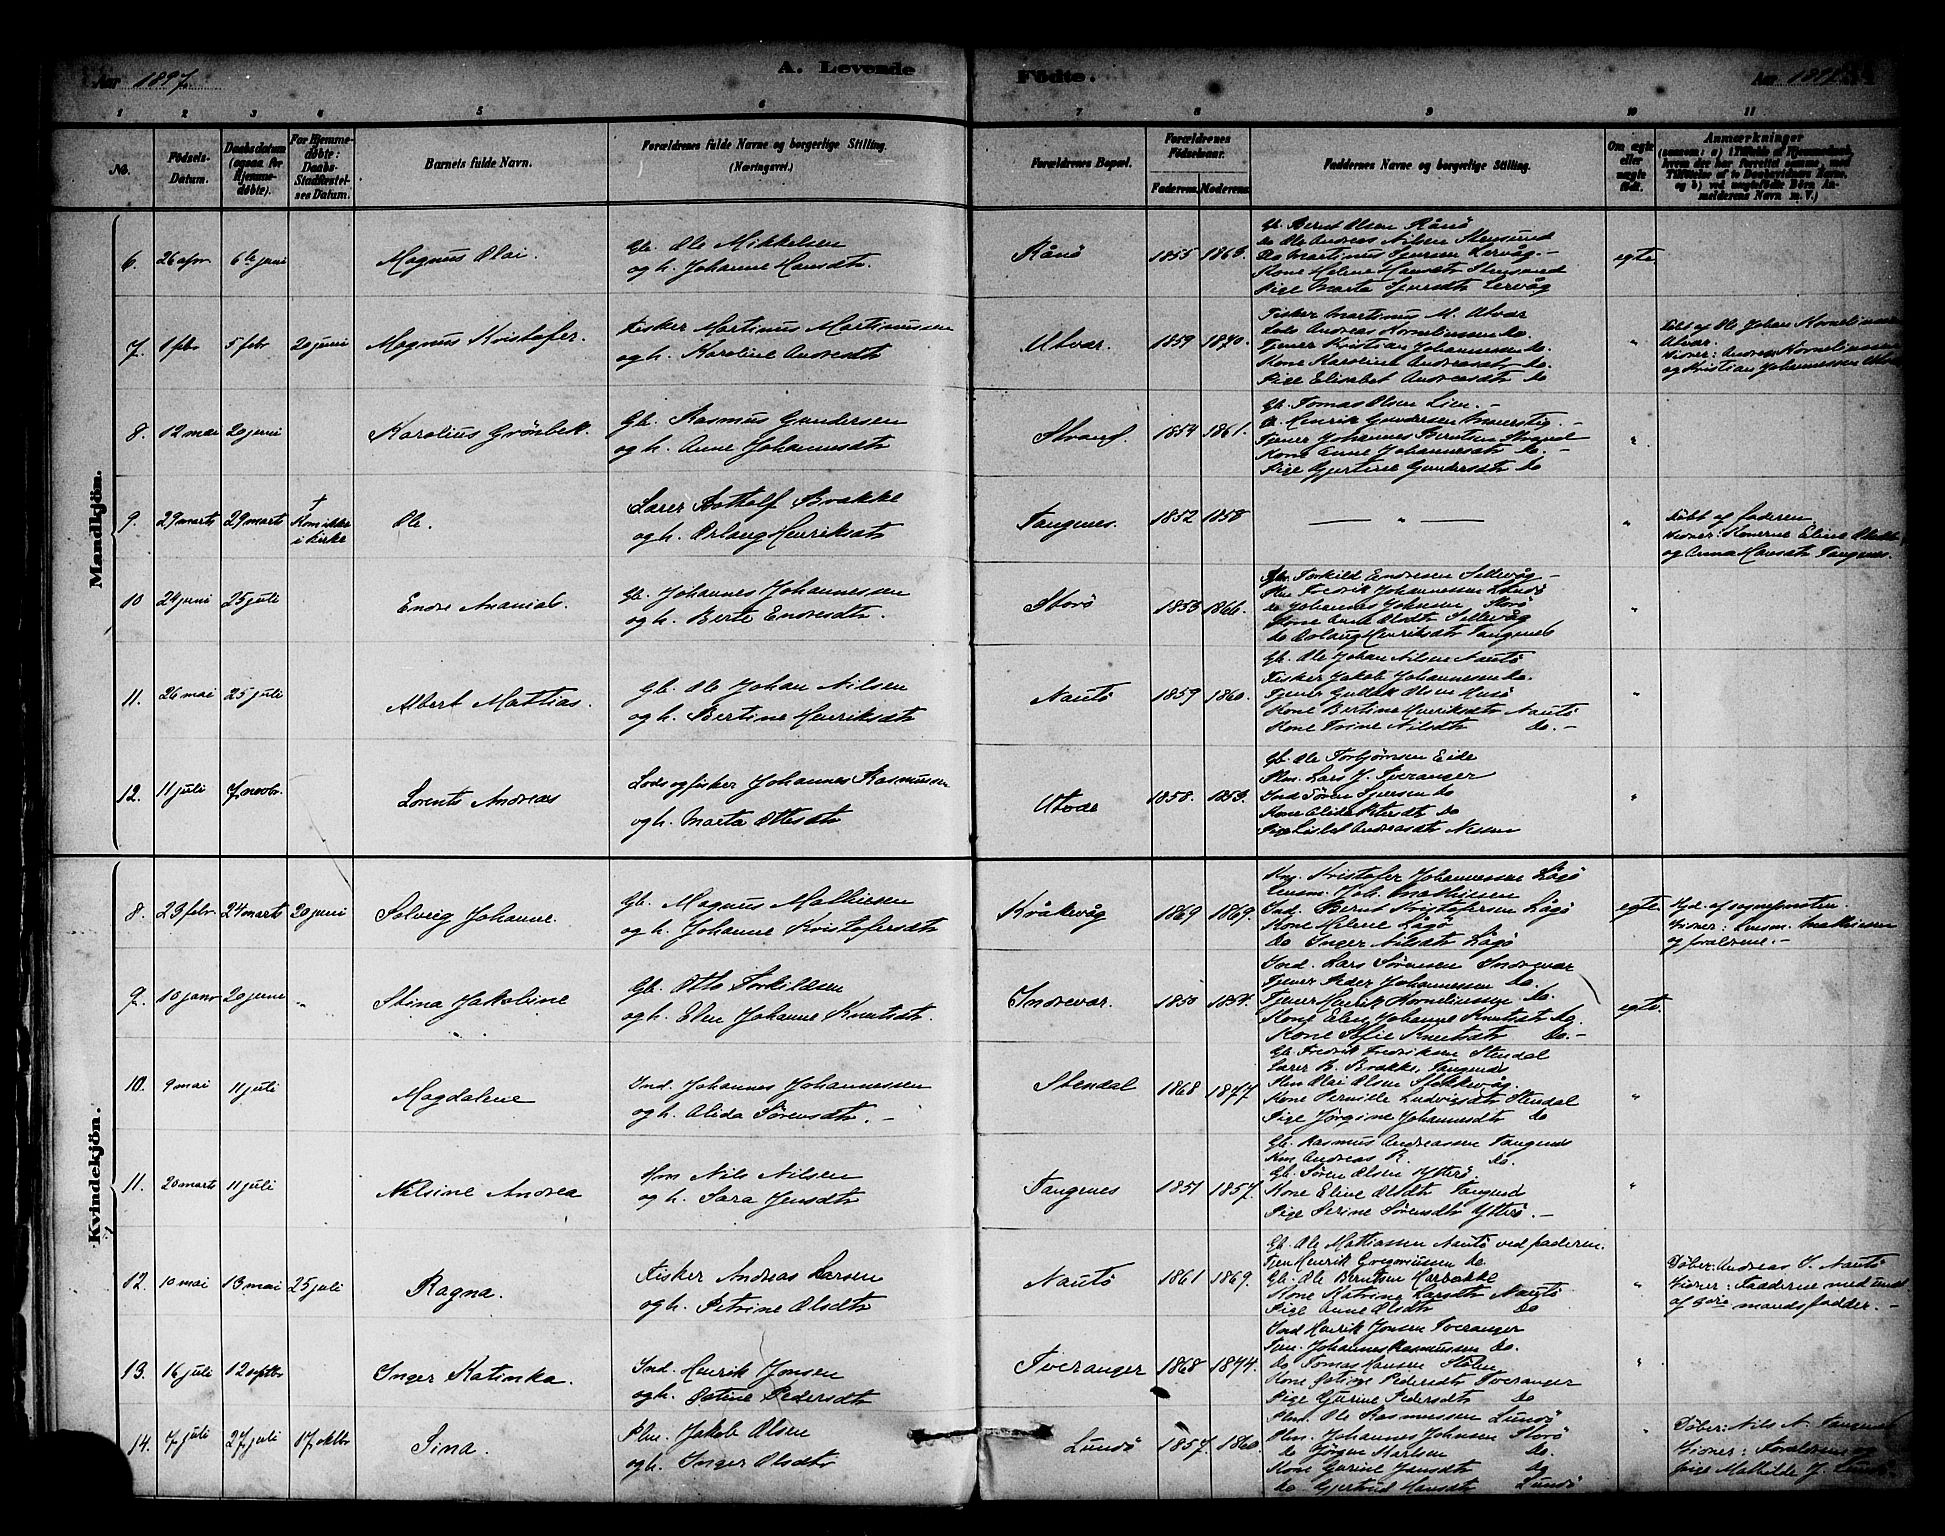 Aar 1897.
A. Levende Födte.
Aar 1897
1 2 3 4 5 6 7 8 9 10 11
No.
Födsels-Datum.
Daabsdatum (ogsaa for Hjemme-döbte).
For Hjemme-döbte: Daabs-Stadfæstelses Datum.
Barnets fulde Navn.
Forældrenes fulde Navne og borgerlige Stilling. (Næringsvei.)
Forældrenes Bopæl.
Forældrenes Födselsaar. Faderens. Moderens.
Faddernes Navne og borgerlige Stilling.
Om ægte eller uægte födt.
Anmærkninger
Mandkjön.
6. 26 apr 6te juni Magnus Olai. Gb. Ole Mikkelsen
og h. Johanne Hansdtr. Rånö 1855 1863.
Gb. Bernt Olsen Rånö
do Ole Andreas Nilsen Stensund
do Martinus Sjursen Lervåg. -
Kone Helene Hansdtr Stensund
Pige Marta Sjursdtr Lervåg
egte
7. 1 febr 5 febr 20 juni Magnus Kristofer. Fisker Martinus Martinussen
og h. Karoline Andresdtr Utvær. 1859 1870.
Fisker Martinus M. Utvær
Lods Andreas Kornelinssen do.
Tjener Kristian Johannessen do.
Kone Karoline Andreasdtr do.
Pige Elisabet Andreasdtr do
"
Döbt af Ole Johan Kornelinssen
Utvær.
Vidner: Andreas Kornelinssen
og Kristian Johannessen Utvær
8. 12 mai 20 juni Karolius Grönbek. Gb. Rasmus Gundersen
og h. Anne Johannesdtr Strand. 1854 1861.
Gb. Tomas Olsen Lien. -
Gb. Henrik Gundersen
Tjener Johannes Berntsen Strand
Kone Anne Johannesdtr do. -
Pige Gjertine Gundersdtr do
"
9. 29 marts 29 marts † Kom ikke i kirke Ole. Lærer Bottolf Brække
og h. Oslaug Henriksdtr Tangenes. 1852 1858
— " —
"
Döbt af faderen
Vidner: Konerne Eline Olsdtr
og Anna Hansdtr Tangenes.
10 24 juni 25 juli Endre Ananias. Gb. Johannes Johannessen
og h. Berte Endresdtr. Storö 1853 1866.
Gb. Torkild Endresen Sellevåg -
Plm Fredrik Johannessen Lundö
do Johannes Johnsen Storö
Kone Anne Olsdtr Sellevåg
do Oslaug Henriksdtr Tangenes
"
11. 26 mai 25 juli Albert Mattias. Gb. Ole Johan Nilsen
og h. Bertine Henriksdtr Nautö 1859 1860.
Gb. Ole Johan Nilsen Nautö
Fisker Jakob Johannesen do.
Tjener Gullak Olsen Husö
Kone Bertine Henriksdtr Nautö
Kone Trine Nilsdtr do. -
"
12. 11 juli 7 novbr. Lorents Andreas Lods og fisker Johannes Rasmussen
og h. Marta Ottesdtr Utvær 1858. 1853.
Gb. Ole Torbjörnsen Eide
Plm. Lars J. Tveranger
Ind Sören Sjursen do
Kone Alida Petersdtr do
Pige Lisbet Andreasdtr Nesse
"
Kvindekjön.
8. 23 febr 24 marts 20 juni Solveig Johanne. Gb. Magnus Mathiesen
og h. Johanne Kristofersdtr Kråkevåg 1869 1869.
Km. Kristofer Johannessen Lågö
Lensm. Joh. Mathiesen
Ind. Bernt Kristofersen Lågö
Kone Helene Lågö
do Inger Nilsdtr Lågö
egte.
Hjd. af sogneprästen.
Vidner: Lensm. Mathiesen
og forældrene. -
9. 10 janr 20 june " Stina Jakobine Gb. Otto Torkildsen
og h. Elen Johanne Knutsdtr. Indrevær. 1850 1854.
Ind. Lars Sörensen Indrevær
Tjener Peder Johannessen do.
Tjener Henrik Korneliussen do.
Kone Elen Johanne Knutsdtr do.
Kone Sofie Knutsdtr do. -
egte.
10. 9 mai 11 juli Magdalene Ind. Johannes Johannessen
og h. Alida Sörensdtr. - Stendal 1868 1877
Gb. Fredrik Fredriksen Stendal
Lærer B. Brække, Tangenes
Plm Olai Olsen Stokkevåg.
Kone Pernille Ludvigsdtr Stendal
Pige Jörgine Johannesdtr do
"
11. 20 marts 11 juli Nilsine Andrea Hm Nils Nilsen
og h. Sara Jensdtr Tangenes 1851 1857.
Gb. Rasmus Andreassen Tangenes
Km Andreas R. do.
Gb. Sören Olsen Ytterö
Kone Eline Olsdtr Tangenes
Pige Serine Sörensdtr Ytterö. -
"
12. 10 mai 13 mai 25 juli Ragna. Fisker Andreas Larsen
og h. Petrine Olsdtr Nautö 1861 1869.
Gb. Ole Mattiassen Nautö ved faderen.
Tjen Henrik Gregoriussen do
Gb. Ole Berntsen Harbakke
Kone Katrine Larsdtr Nautö
Pige Anne Olsdtr do
"
Döber: Andreas J. Nautö
Vidner: Fadderne med undt.
af 3die mandsfadder. -
13. 16 juli 12 septbr Inger Katinka. Ind. Henrik Jonsen
og h. Oline Pedersdtr Tveranger 1868 1874.
Ind Henrik Jonsen Tveranger
Tjen. Johannes Rasmussen do.
do Tomas Hansen Stölen
Kone Oline Pedersdtr Tveranger
Pige Gurine Pedersdtr do
"
14. 7 juli 27 juli 17 oktbr Sina. Plm. Jakob Olsen
og h. Inger Olsdtr Lundö 1857. 1860.
Plm. Ole Rasmussen Lundö
Plm. Johannes Johnsen Storö
do Jörgen Karlsen do.
Kone Gurine Jansdtr do
do Gjertrud Hansdtr Lundö
Döber: Nils N. Tangenes
Vidner: Forældrene og
pige Mathilde J. Lundö